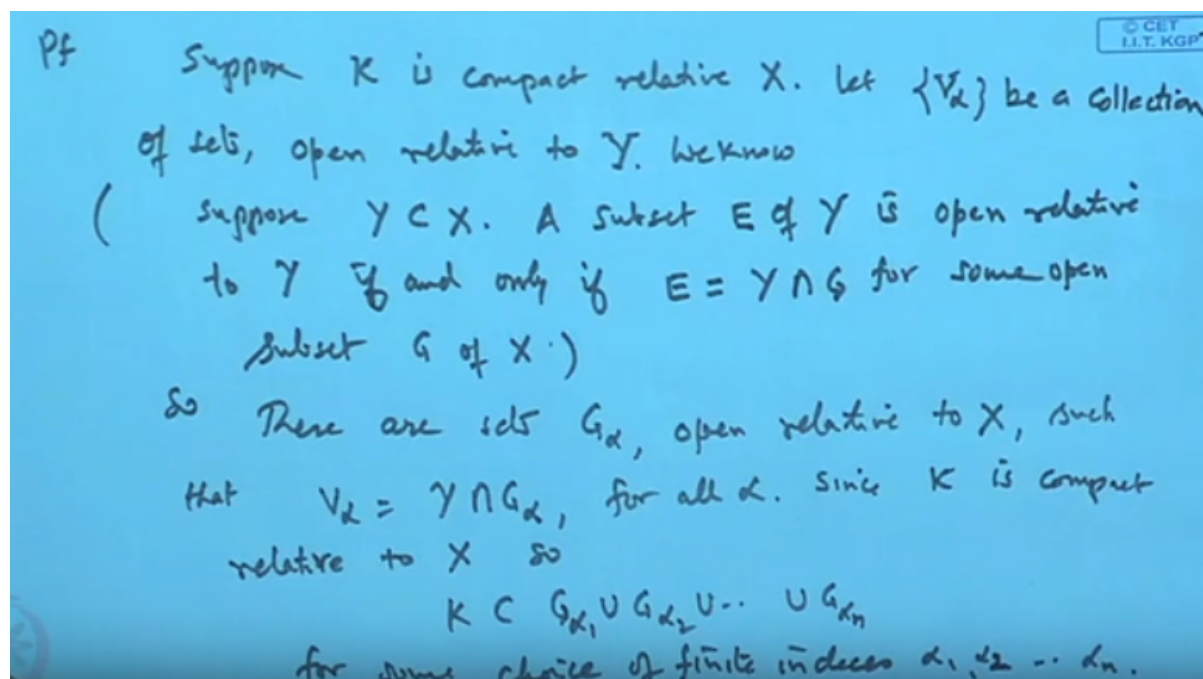 © CET
I.I.T. KGP
Pf Suppose K is compact relative X. Let {Vα} be a collection
of sets, open relative to Y. We know
( Suppose Y ⊂ X. A subset E of Y is open relative
to Y if and only if E = Y ∩ G for some open
subset G of X.)
So There are sets Gα, open relative to X, such
that Vα = Y ∩ Gα, for all α. Since K is compact
relative to X so
K ⊂ Gα₁ ∪ Gα₂ ∪ ·· ∪ Gαₙ
for some choice of finite indeces α₁, α₂ ·· αₙ.